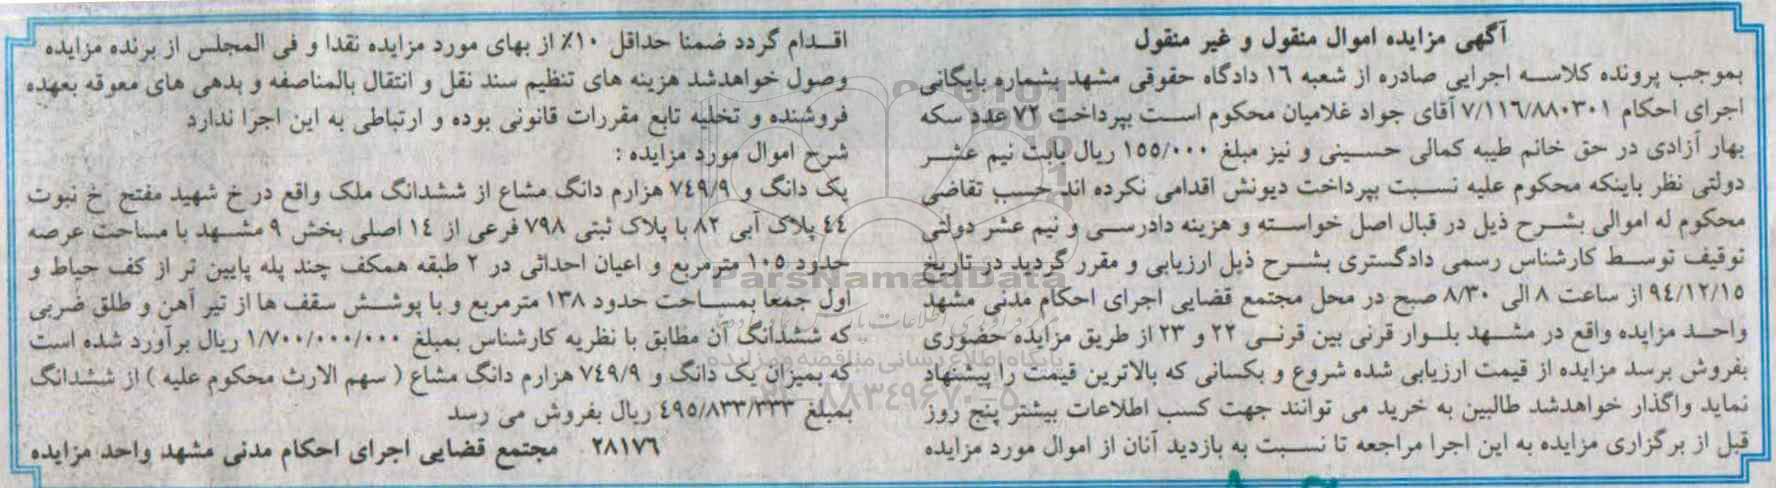 آگهی مزایده اموال منقول و غیر منقول
بموجب پرونده کلاسه اجرایی صادره از شعبه ۱۶ دادگاه حقوقی مشهد بشماره بایگانی
اجرای احکام ۷/۱۱۶/۸۸۰۳۰۱ آقای جواد غلامیان محکوم است بپرداخت ۷۲ عدد سکه
بهار آزادی در حق خانم طیبه کمالی حسینی و نیز مبلغ ۱۵۵/۰۰۰ ریال بابت نیم عشر
دولتی نظر باینکه محکوم علیه نسبت بپرداخت دیونش اقدامی نکرده اند حسب تقاضی
محکوم له اموالی بشرح ذیل در قبال اصل خواسته و هزینه دادرسی و نیم عشر دولتی
توقیف توسط کارشناس رسمی دادگستری بشرح ذیل ارزیابی و مقرر گردید در تاریخ
۹۴/۱۲/۱۵ از ساعت ۸ الی ۸/۳۰ صبح در محل مجتمع قضایی اجرای احکام مدنی مشهد
واحد مزایده واقع در مشهد بلوار قرنی بین قرنی ۲۲ و ۲۳ از طریق مزایده حضوری
بفروش برسد مزایده از قیمت ارزیابی شده شروع و بکسانی که بالاترین قیمت را پیشنهاد
نماید واگذار خواهدشد طالبین به خرید می توانند جهت کسب اطلاعات بیشتر پنج روز
قبل از برگزاری مزایده به این اجرا مراجعه تا نسبت به بازدید آنان از اموال مورد مزایده
اقدام گردد ضمنا حداقل ۱۰٪ از بهای مورد مزایده نقدا و فی المجلس از برنده مزایده
وصول خواهدشد هزینه های تنظیم سند نقل و انتقال بالمناصفه و بدهی های معوقه بعهده
فروشنده و تخلیه تابع مقررات قانونی بوده و ارتباطی به این اجرا ندارد
شرح اموال مورد مزایده :
یک دانگ و ۷۴۹/۹ هزارم دانگ مشاع از ششدانگ ملک واقع در خ شهید مفتح خ نبوت
۴۴ پلاک آبی ۸۲ با پلاک ثبتی ۷۹۸ فرعی از ۱۴ اصلی بخش ۹ مشهد با مساحت عرصه
حدود ۱۰۵ مترمربع و اعیان احداثی در ۲ طبقه همکف چند پله پایین تر از کف حیاط و
اول جمعا بمساحت حدود ۱۳۸ مترمربع و با پوشش سقف ها از تیر آهن و طلق ضربی
که ششدانگ آن مطابق با نظریه کارشناس بمبلغ ۱/۷۰۰/۰۰۰/۰۰۰ ریال برآورد شده است
که بمیزان یک دانگ و ۷۴۹/۹ هزارم دانگ مشاع ( سهم الارث محکوم علیه ) از ششدانگ
بمبلغ ۴۹۵/۸۳۳/۳۳۳ ریال بفروش می رسد
۲۸۱۷۶ مجتمع قضایی اجرای احکام مدنی مشهد واحد مزایده
ParsNamadData
پایگاه اطلاع رسانی مناقصه و مزایده
۰۸۸۳۴۹۶۷۰-۵